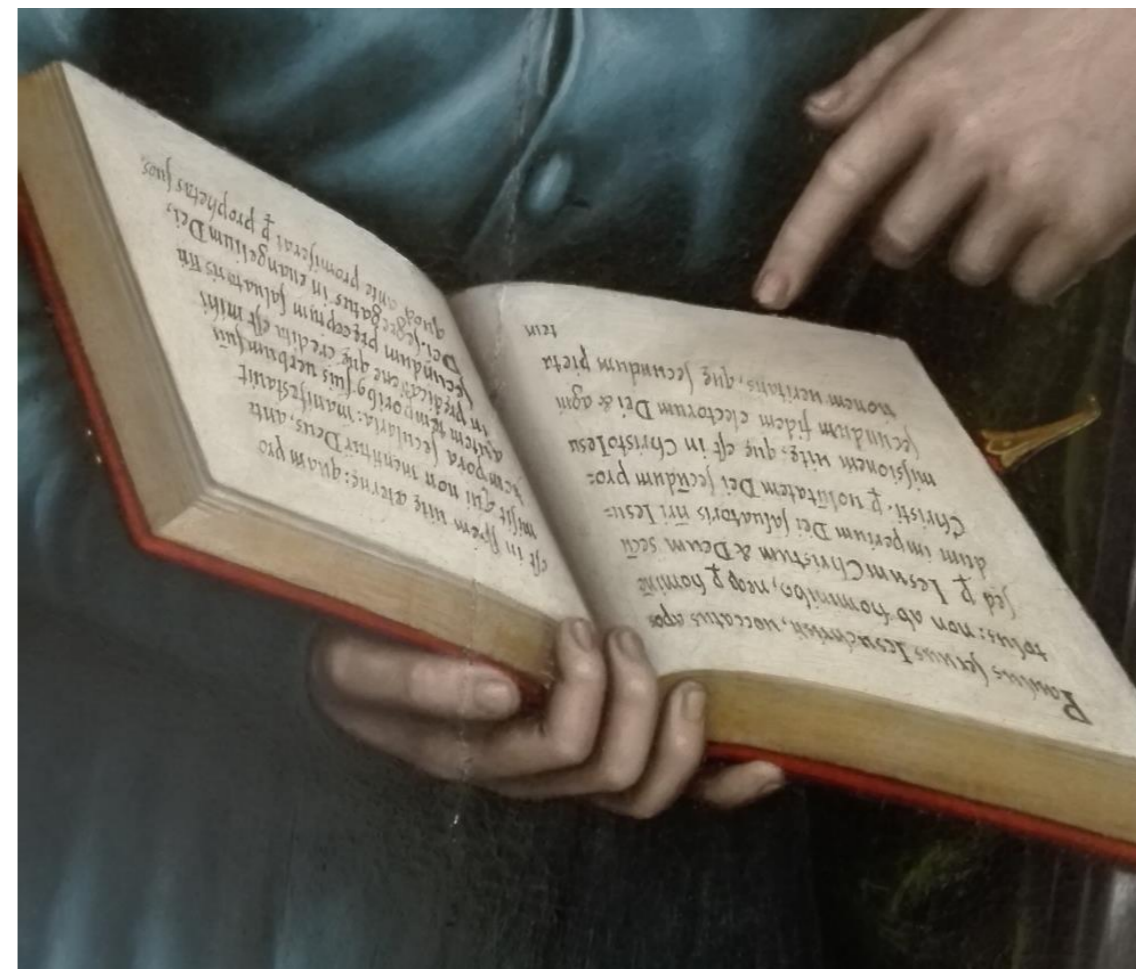 Paulus ſeruus Ieſuchriſti, uoccatus apoſ
tolus: non ab hominibꝰ, neqꝫ ꝑ hominē
ſed ꝑ Iesum Chriſtum & Deum secū
dum imperium Dei ſaluatoris nr̄i Iesu=
Chriſti. ꝑ uolūtatem Dei ſecūdum pro=
miſionem uitę, quę eſt in ChriſtoIesu
ſecundum fidem electorum Dei & agni
tionem ueritatis, quę ſecundum pieta
tem
eſt in ſpem uitę ęterne: quam pro
miſit qui non mentitur Deus, ante
tempora ſecularia: manifeſtauit
autem tēporibꝰ ſuis uerbum ſuū
in predicatiōne quę credita eſt mihi
ſecundum pręceptum ſaluatoris nr̄i
Dei. ſegregatus in euangelium Dei,
quod ante promiſerat ꝑ prophetas ſuos.